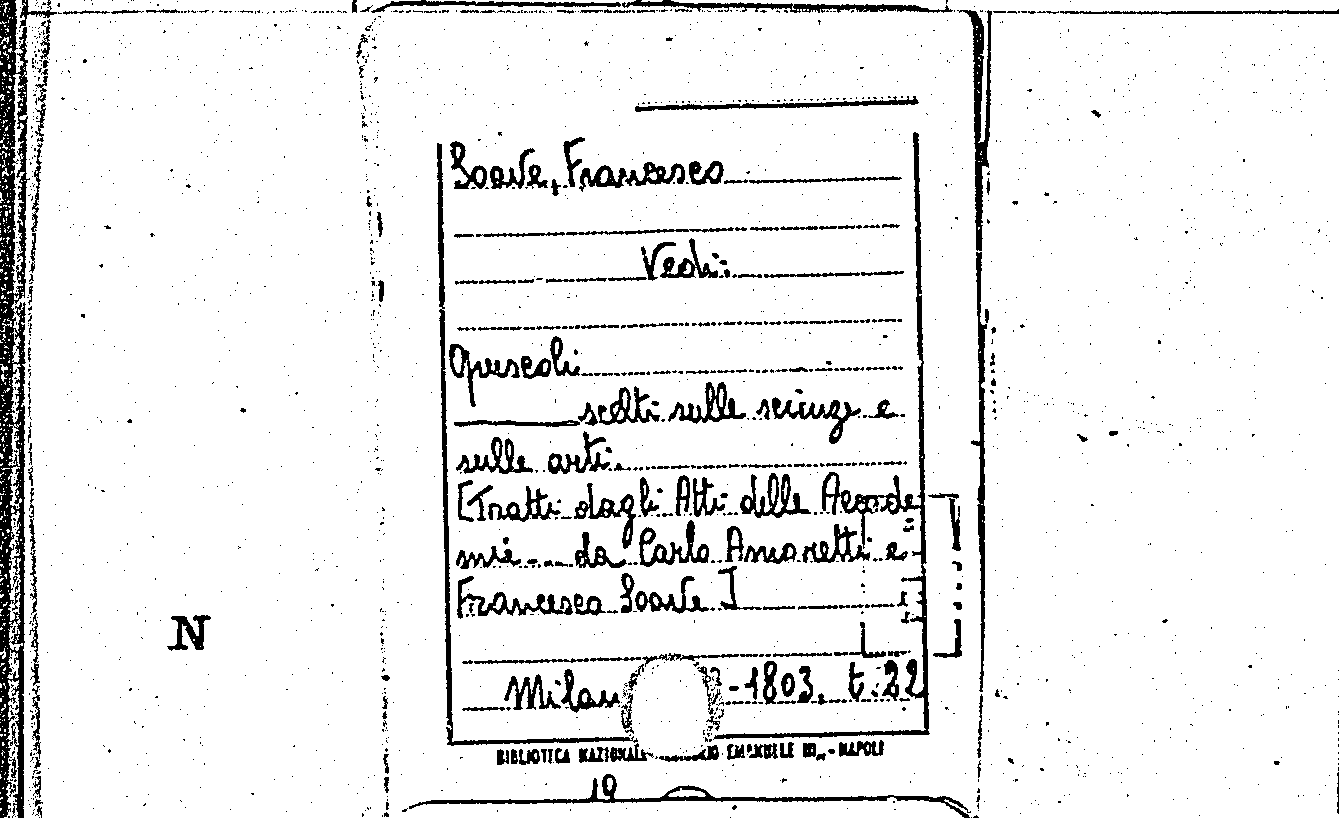 Soave, Francesco
Vedi:
Opuscoli
scelti sulle scienze e
sulle arti.
[Tratti dagli Atti delle Accade
mie... da Carlo Amoretti e
Francesco Soave]
N
-1803. t. 22
BIBLIOTECA NAZIONALE EMANUELE III„ - NAPOLI
19